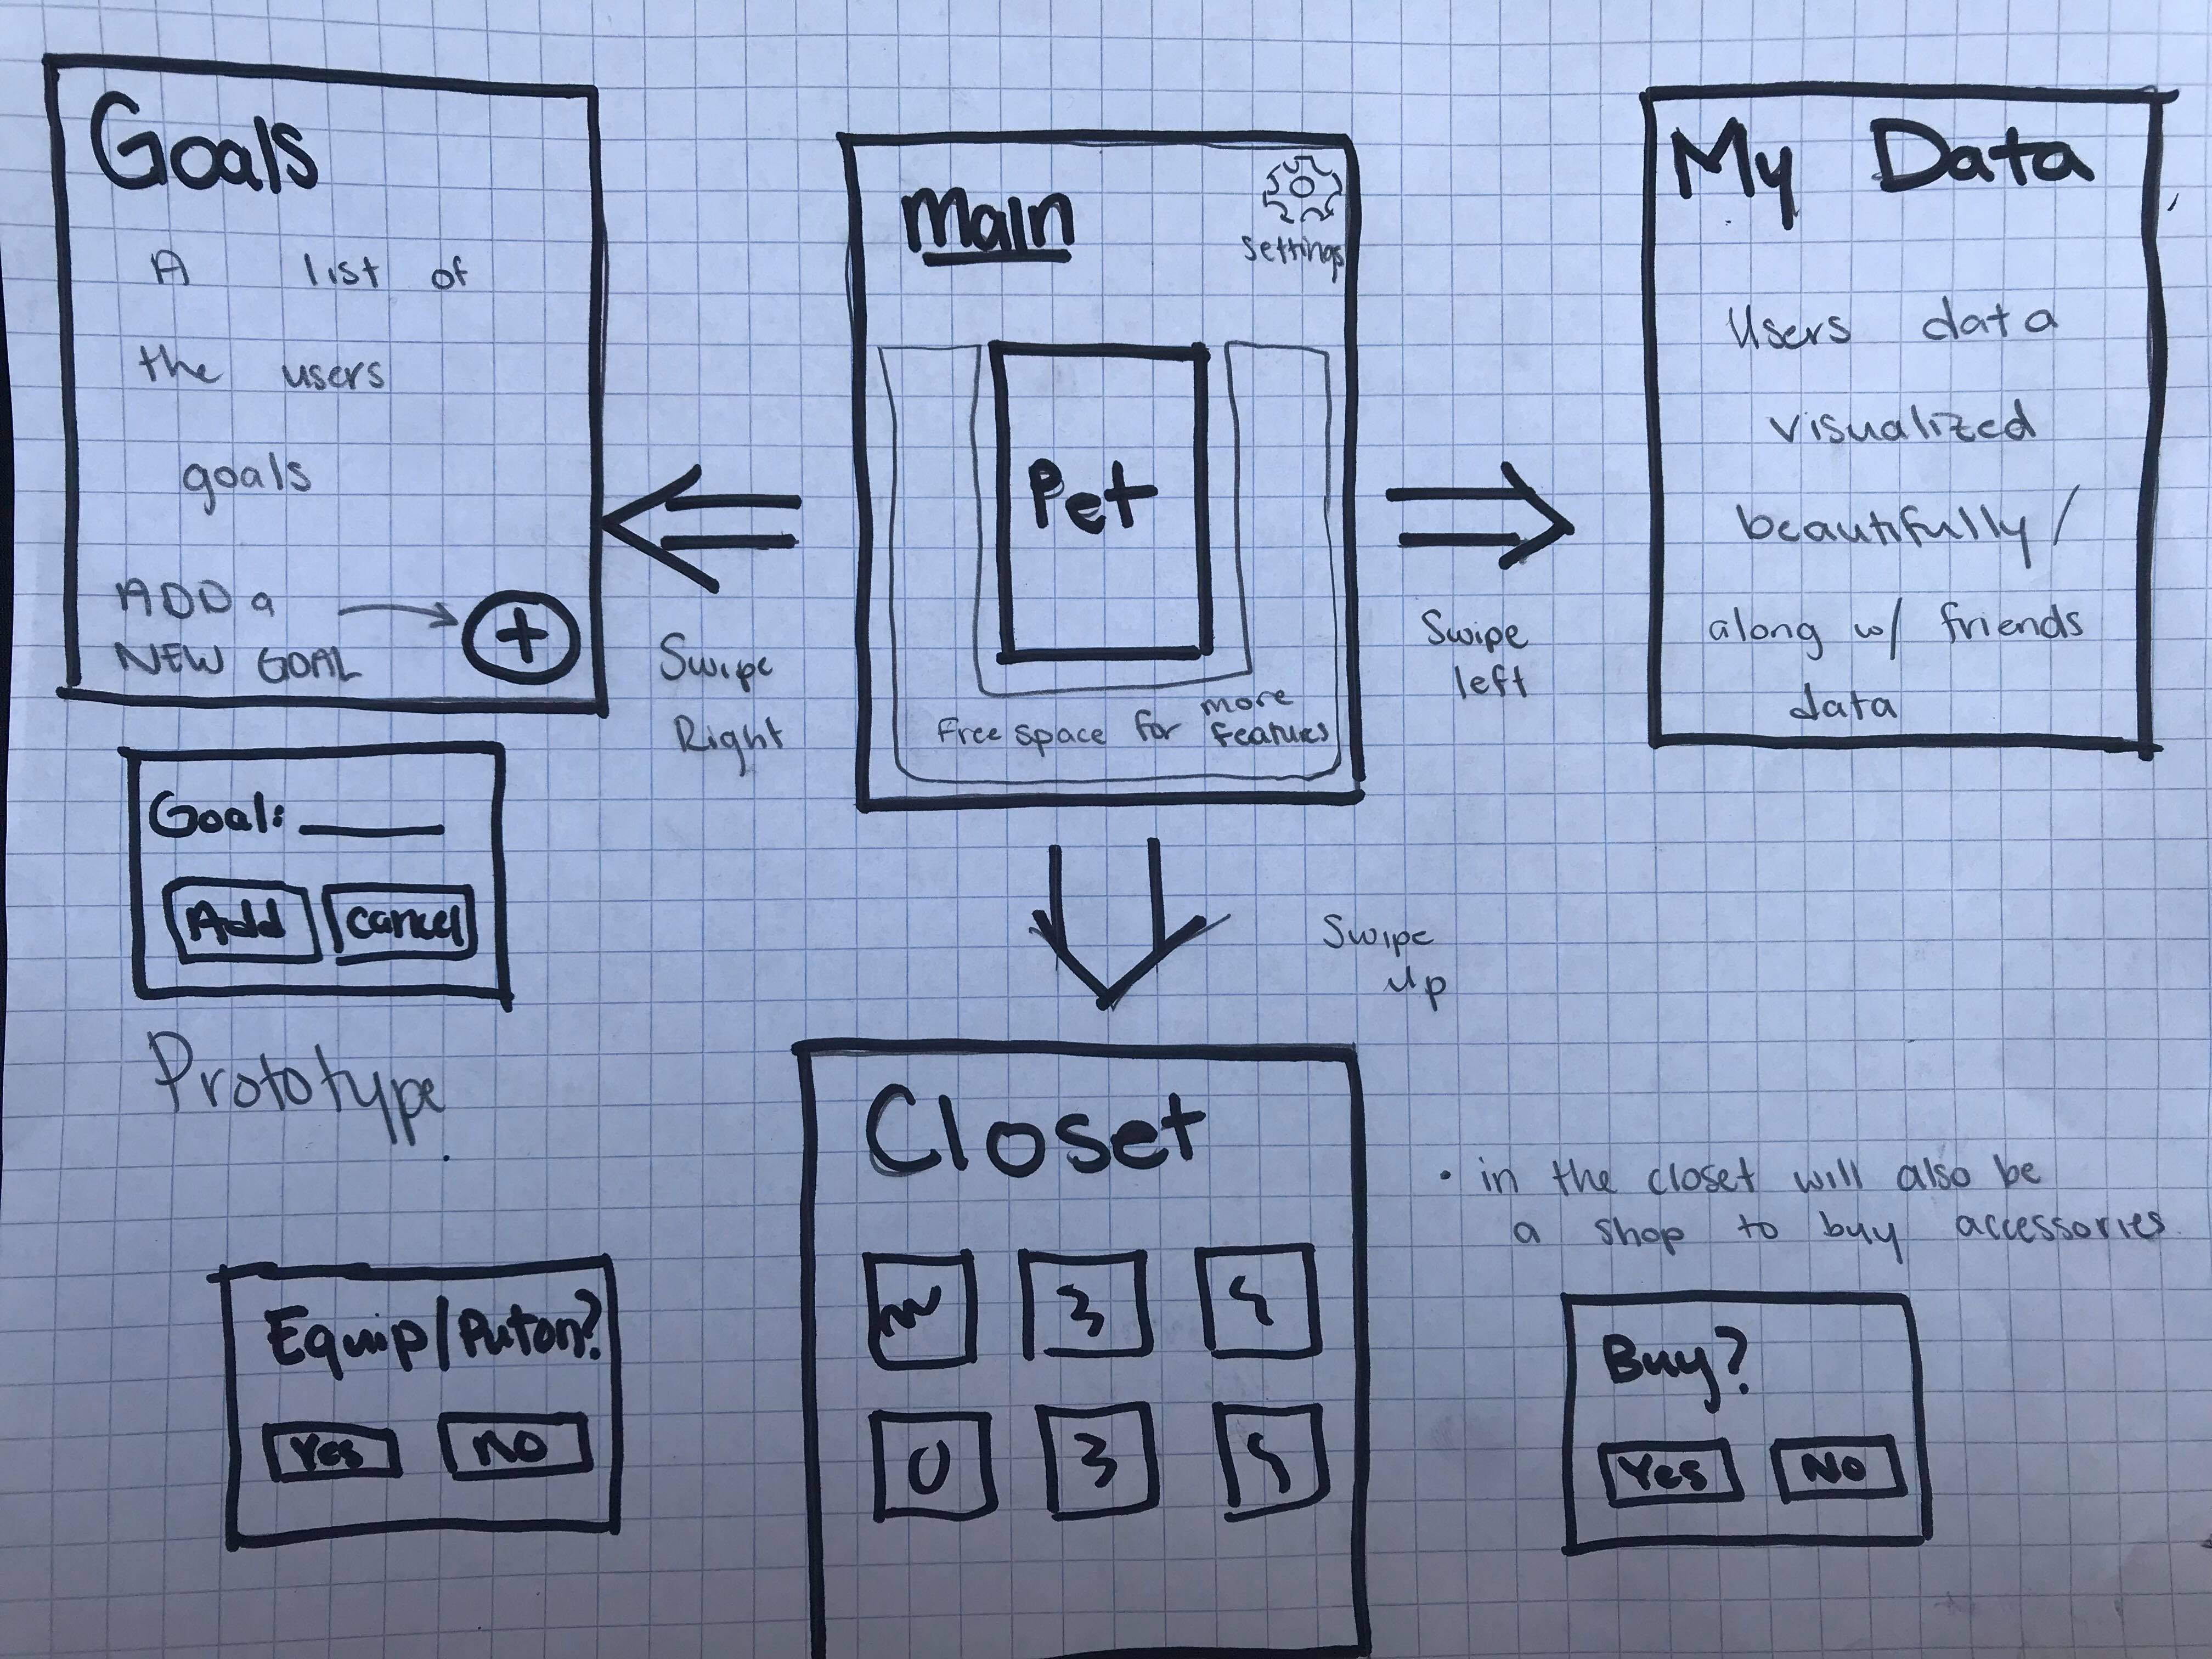 Goals
A list of
the users
goals
ADD a
NEW GOAL
+
Goal: ______
Add
cancel
Prototype
Swipe
Right
Main
Settings
Pet
Free space for more
features
Swipe
left
My Data
Users data
visualized
beautifully/
along w/ friends
data
Swipe
up
Closet
• in the closet will also be
a shop to buy accessories
Equip/Puton?
Yes
NO
Buy?
Yes
No